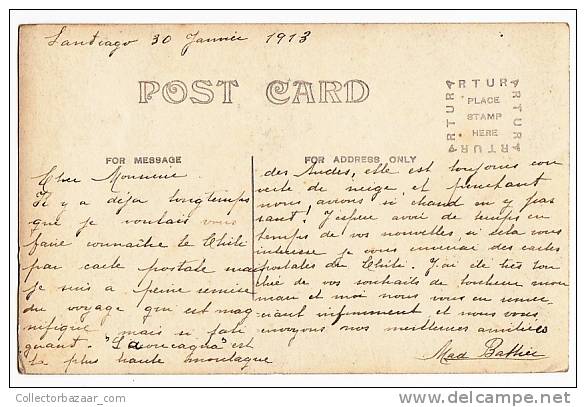 Santiago 30 Janvier 1913
POST CARD
ARTURA
ARTURA
ARTURA
ARTURA
PLACE
STAMP
HERE
FOR MESSAGE
Cher Monsieur
Il y a déja longtemps
que je voulais vous
faire connaître le Chili
par carte postale mais
je suis a peine remise
du voyage qui est mag
nifique mais si fati
guant. "L'aconcagua" est
la plus haute montagne
FOR ADDRESS ONLY
des Andes, elle est toujours cou
verte de neige, et pourtant
nous avions si chaud en y pas
sant! J'espère avoir de temps en
temps de vos nouvelles si cela vous
interesse je vous enverrai des cartes
postales du Chili. J'ai été très tou
chée de vos souhaits de bonheur mon
mari et moi nous vous en remer
ciant infiniment et nous vous
envoyons nos meilleures amitiés
Mad
CollectorBazaar.com
www.delcampe.net